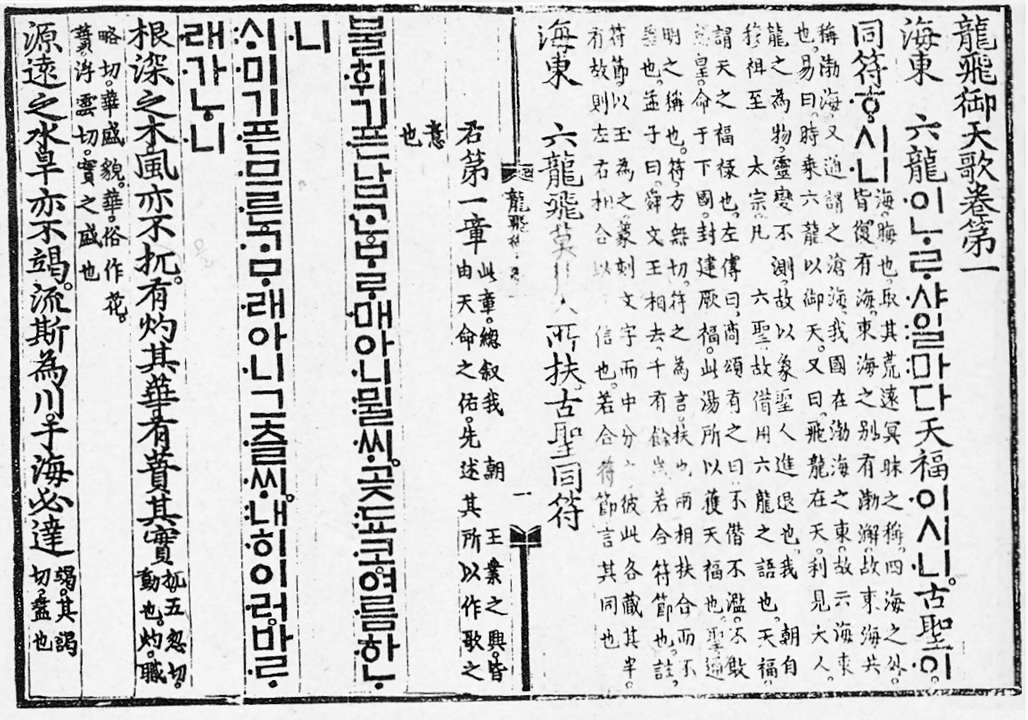 龍飛御天歌卷第一
海東 六龍이ᄂᆞᄅᆞ샤일마다天福이시니。古聖이
同符ᄒᆞ시니
海。晦也。取其荒遠冥昧之稱。四海之外。
皆復有海。東海之別有渤澥。故東海共
稱渤海。又通謂之滄海。我國在渤海之東。故云海東
也。易曰。時乘六龍以御天。又曰。飛龍在天。利見大人。
龍之爲物。靈變不測。故以象聖人進退也。我 朝自
穆祖至 太宗。凡 六聖。故借用六龍之語也。天福。
謂天之福祿也。左傳曰。商頌有之曰。不僭不濫。不敢
怠皇。命于下國。封建厥福。此湯所以獲天福也。聖。通
明之稱也。符。方無切。符之爲言扶也。兩相扶合而不
差也。孟子曰。舜文王相去。千有餘歲。若合符節也。註。
符節。以玉爲之。篆刻文字而中分之。彼此各藏其半。
有故則左右相合以 信也。若合符節言其同也
海東 六龍飛莫 所扶古聖同符
龍飛
一
右第一章
此章。總叙我 朝 王業之興。皆
由天命之佑。先述其所以作歌之
意
也
불휘기픈남ᄀᆞᆫᄇᆞᄅᆞ매아니뮐ᄊᆡ。곶됴코여름하ᄂᆞ
니
ᄉᆡ미기픈므른ᄀᆞᄆᆞ래아니그츨ᄊᆡ。내히이러바ᄅᆞ
래가ᄂᆞ니
根深之木風亦不扤。有灼其華有蕡其實
扤。五忽切。
動也。灼。職
略切。華盛貌。華。俗作花。
蕡浮雲切。實之盛也
源遠之水旱亦不竭。流斯爲川。于海必達
竭。其謁
切。盡也